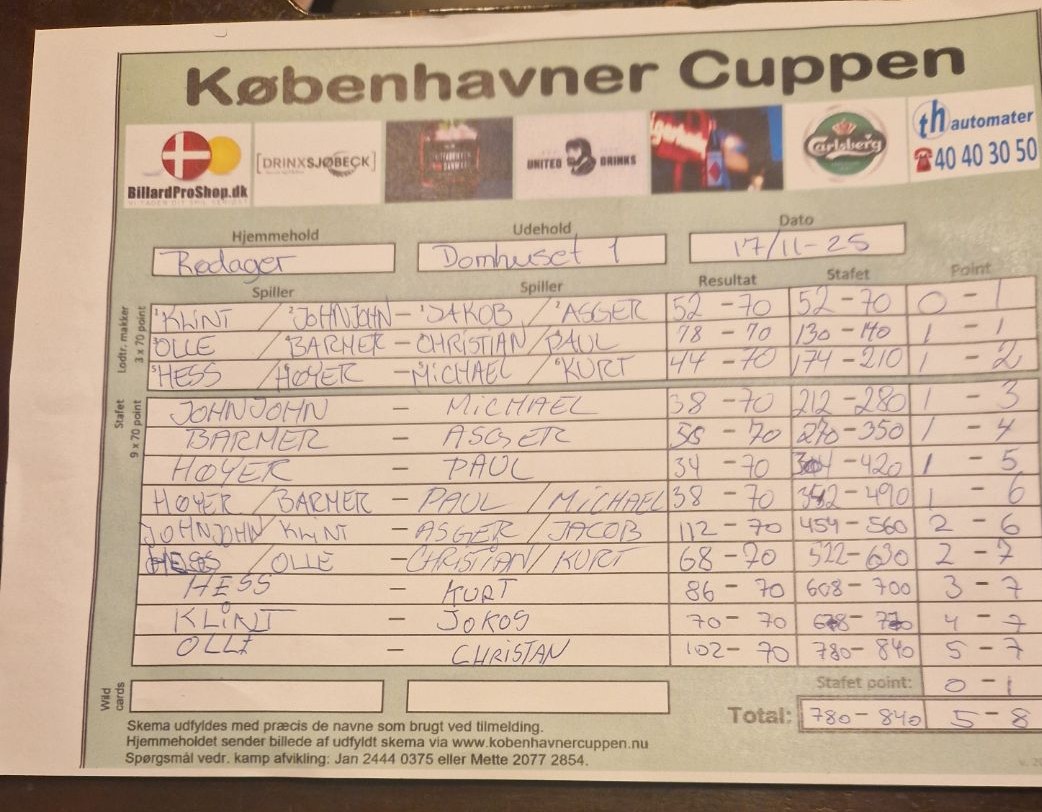 Københavner Cuppen
BillardProShop.dk
[DRINXSJØBECK]
UNITED DRINKS
Carlsberg
th automater
☎40 40 30 50
Hjemmehold Udehold Dato
Rødager Domhuset 1 17/11-25
Spiller Spiller Resultat Stafet Point
Lodtr. makker
3 x 70 point
1 KLINT / 2 JOHNJOHN – 1 JAKOB / 2 ASGER 52 – 70 52 – 70 0 – 1
3 OLLE / BARMER – CHRISTIAN / PAUL 78 – 70 130 – 140 1 – 1
5 HESS / HØYER – MICHAEL / 6 KURT 44 – 70 174 – 210 1 – 2
Stafet
9 x 70 point
JOHNJOHN – MICHAEL 38 – 70 212 – 280 1 – 3
BARMER – ASGER 58 – 70 270 – 350 1 – 4
HØYER – PAUL 34 – 70 304 – 420 1 – 5
HØYER / BARMER – PAUL / MICHAEL 38 – 70 342 – 490 1 – 6
JOHNJOHN / KLINT – ASGER / JACOB 112 – 70 454 – 560 2 – 6
HESS / OLLE – CHRISTIAN / KURT 68 – 70 522 – 630 2 – 7
HESS – KURT 86 – 70 608 – 700 3 – 7
KLINT – JOKOS 70 – 70 678 – 770 4 – 7
OLLE – CHRISTAN 102 – 70 780 – 840 5 – 7
Wild cards
Stafet point: 0 – 1
Total: 780 – 840 5 – 8
Skema udfyldes med præcis de navne som brugt ved tilmelding.
Hjemmeholdet sender billede af udfyldt skema via www.kobenhavnercuppen.nu
Spørgsmål vedr. kamp afvikling: Jan 2444 0375 eller Mette 2077 2854.